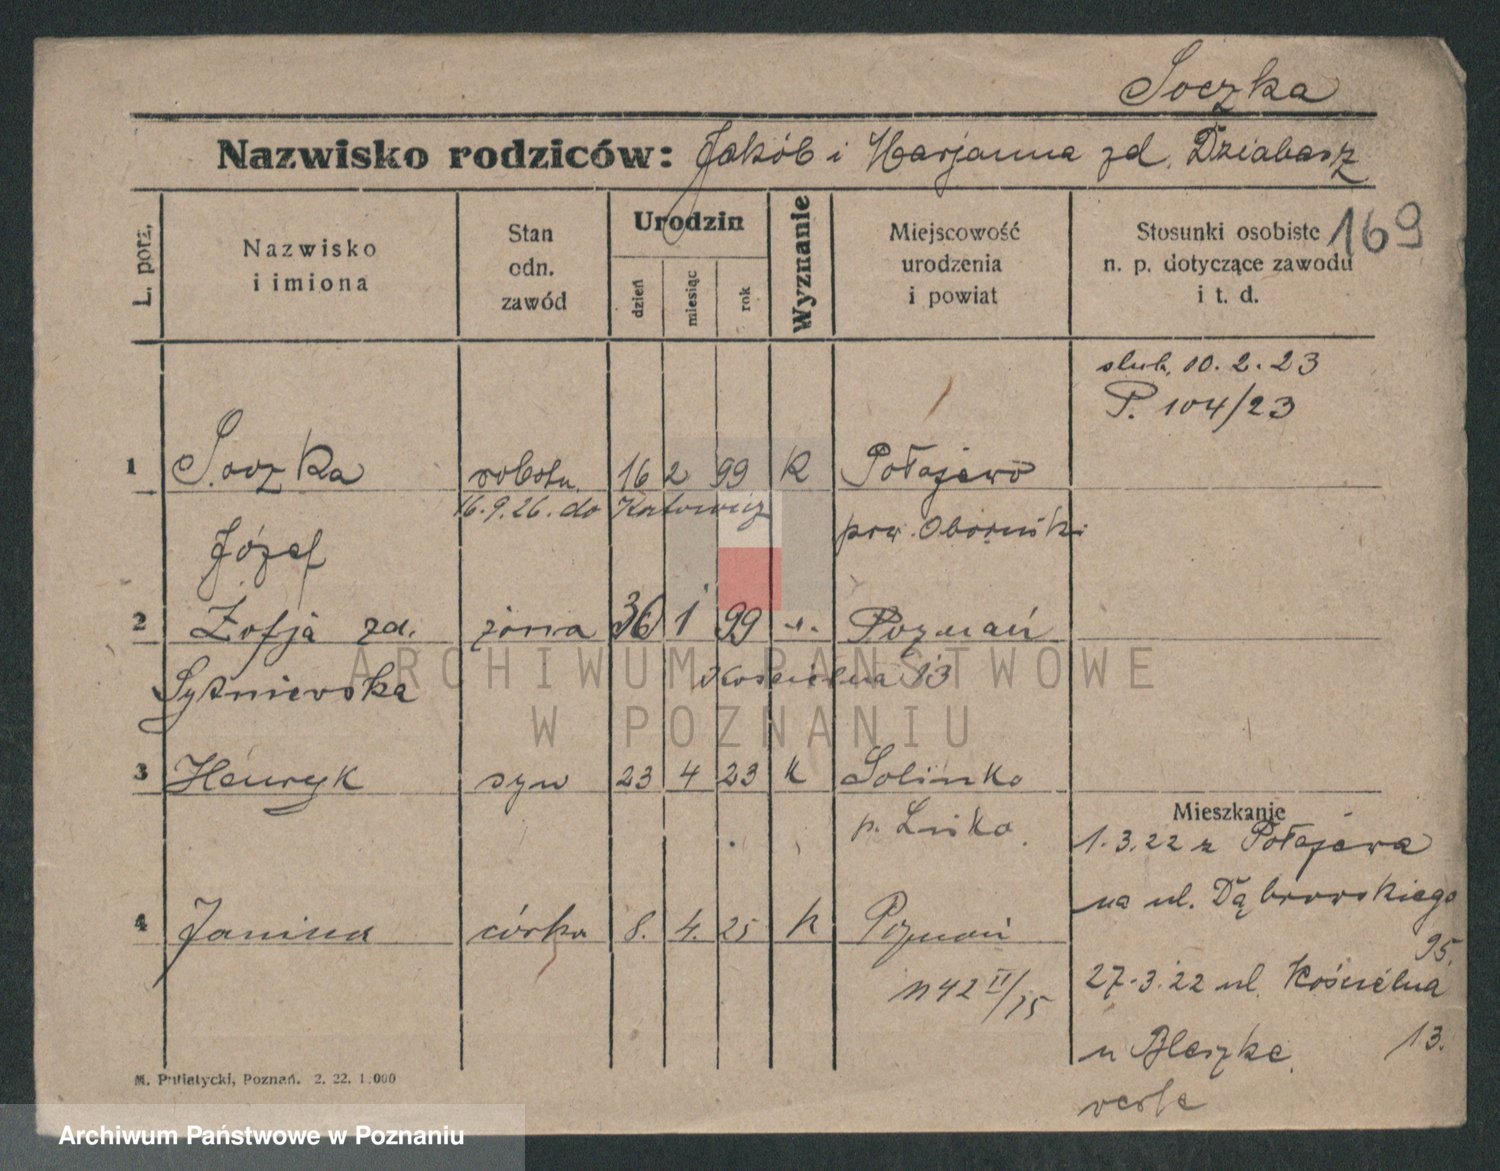 Soczka
Nazwisko rodziców: Jakób i Marjanna zd. Dziabasz
169
L. porz.
Nazwisko
i imiona
Stan
odn.
zawód
Urodzin
dzień
miesiąc
rok
Wyznanie
Miejscowość
urodzenia
i powiat
Stosunki osobiste
n. p. dotyczące zawodu
i t. d.
slub. 10. 2. 23
P. 104/23
1 Soczka robotn. 16 2 99 K Połajewo
16.9.26. do Katowicz
Józef pow. Oborniki
2 Zofja zd. żona 30 1 99 Poznań
Kościelna 13
3 Henryk syn 23 4 23 k
Mieszkanie
1.3.22 z Połajewa
na ul. Dąbrowskiego
95.
4 Janina córka 8. 4. 25 k Poznań
27.3.22 ul. Kościelna
13.
M. Putiatycki, Poznań. 2. 22. 1.000
ARCHIWUM PAŃSTWOWE
W POZNANIU
Archiwum Państwowe w Poznaniu